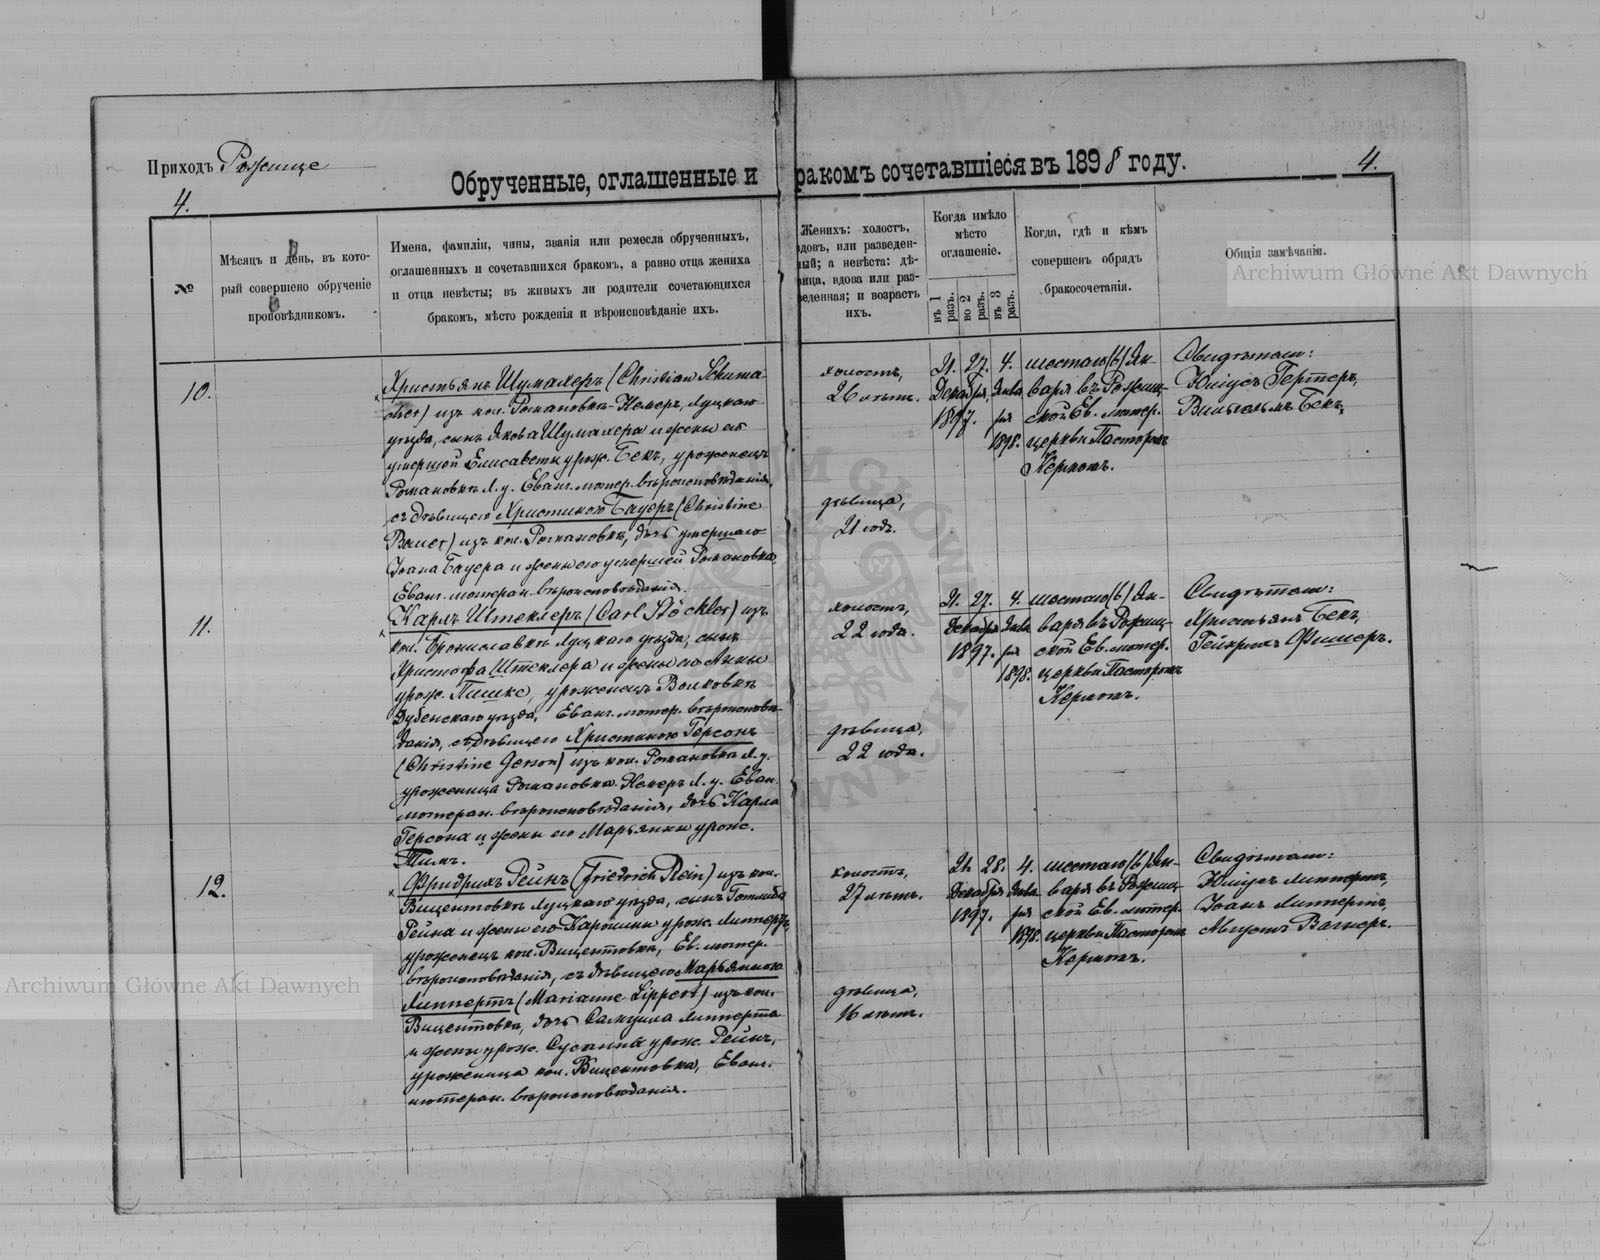 Приходъ Рожище
Обрученные, оглашенные и бракомъ сочетавшіеся въ 1898 году.
4.
4.
№
Мѣсяцъ и день, въ кото-
рый совершено обрученіе
проповѣдникомъ.
Имена, фамиліи, чины, званія или ремесла обрученныхъ,
оглашенныхъ и сочетавшихся бракомъ, а равно отца жениха
и отца невѣсты; въ живыхъ ли родители сочетающихся
бракомъ, мѣсто рожденія и вѣроисповѣданіе ихъ.
Женихъ: холостъ,
вдовъ, или разведен-
ный; а невѣста: дѣ-
вица, вдова или раз-
веденная; и возрастъ
ихъ.
Когда имѣло
мѣсто
оглашеніе.
въ 1 разъ.
во 2 разъ.
въ 3 разъ.
Когда, гдѣ и кѣмъ
совершенъ обрядъ
бракосочетанія.
Общія замѣчанія.
Archiwum Główne Akt Dawnych
10.
Христьянъ Шумахеръ (Christian Schuma-
cher) изъ кол. Романовкъ-Немеръ, Луцкаго
уѣзда, сынъ Якова Шумахера и жены его
умершой Елисаветы урож. Бекъ, уроженецъ
Романовкъ Л. у. Еванг. лютер. вѣроисповѣданія,
съ дѣвицею Христиною Бауеръ (Christine
Bauer) изъ кол. Романовкъ, дочь умершаго
Іоана Бауера и жены его умершей Романовка,
Еванг. лютеран. вѣроисповѣданія.
холостъ,
26 лѣтъ.
дѣвица,
21 годъ.
21. 27. 4.
Декабря, Янва
1897. ря
1898.
шестаго (6) Ян-
варя въ Рожищ-
ской Ев. лютер.
церкви Пасторомъ
Кермомъ.
Свидѣтели:
Юліусъ Гертеръ,
Вильгельмъ Бекъ.
11.
Карлъ Штеклеръ (Carl Stöckler) изъ
кол. Брониславкъ Луцкаго уѣзда, сынъ
Христофа Штеклера и жены его Анны
урож. Пишке, уроженецъ Волковкъ
Дубенскаго уѣзда, Еванг. лютер. вѣроисповѣ-
данія, съ дѣвицею Христиною Герсонъ
(Christine Gerson) изъ кол. Романовкъ Л. у.
уроженица Романовка-Немеръ Л. у. Еван.
лютеран. вѣроисповѣданія, дочь Карла
Герсона и жены его Марьянны урож.
Тимъ.
холостъ,
22 года.
дѣвица,
22 года.
21. 27. 4.
Декабря Янва
1897. ря
1898.
шестаго (6) Ян-
варя въ Рожищ-
ской Ев. лютер.
церкви Пасторомъ
Кермомъ.
Свидѣтели:
Христьянъ Бекъ,
Гейнрихъ Фишеръ.
12.
Фридрихъ Рейнъ (Friedrich Rein) изъ кол.
Вицентовкъ Луцкаго уѣзда, сынъ Готлиба
Рейна и жены его Каролины урож. Липпертъ,
уроженецъ кол. Вицентовки, Ев. лютер.
вѣроисповѣданія, съ дѣвицею Марьянною
Липпертъ (Marianne Lippert) изъ кол.
Вицентовка, дочь Самуила Липперта
и жены урож. Сусанны урож. Рейнъ,
уроженица кол. Вицентовка, Еванг.
лютеран. вѣроисповѣданія.
холостъ,
27 лѣтъ.
дѣвица,
16 лѣтъ.
21. 28. 4.
Декабря Янва
1897. ря
1898.
шестаго (6) Ян-
варя въ Рожищ-
ской Ев. лютер.
церкви Пасторомъ
Кермомъ.
Свидѣтели:
Юліусъ Липпертъ,
Іоанъ Липпертъ,
Августъ Вагнеръ.
Archiwum Główne Akt Dawnych